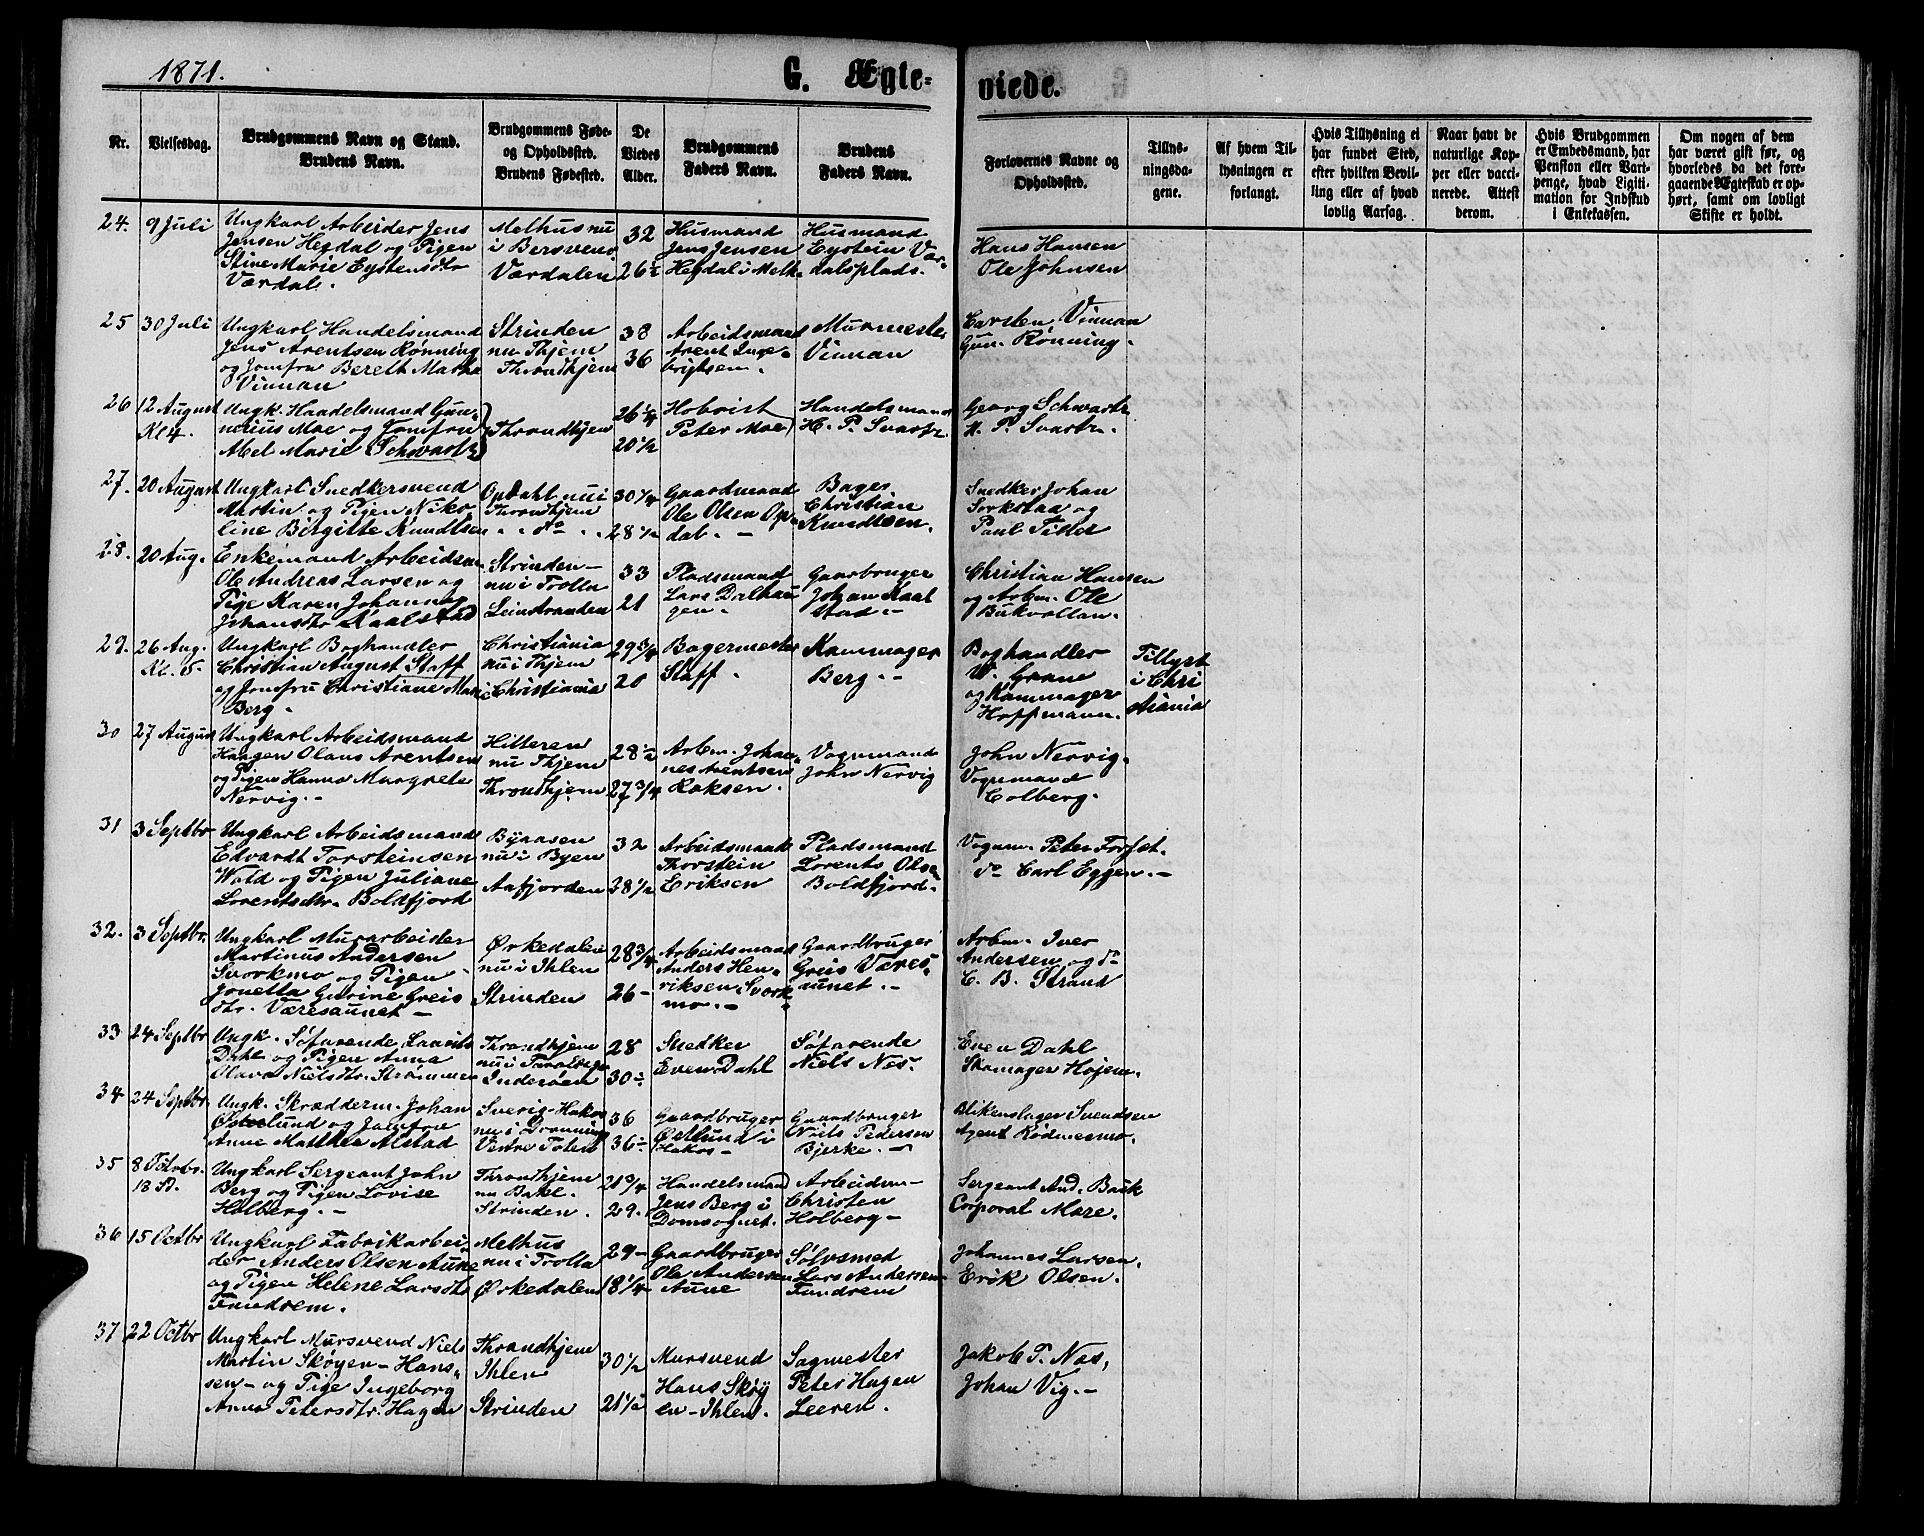 1871.
G. Ægte=
viede.
Nr.
Vielsesdag.
Brudgommens Navn og Stand.
Brudens Navn.
Brudgommens Føde-
og Opholdssted.
Brudens Fødested.
De
Viedes
Alder.
Brudgommens
Faders Navn.
Brudens
Faders Navn.
Forlovernes Navne og
Opholdssted.
Tillys-
ningsda-
gene.
Af hvem Til-
lysningen er
forlangt.
Hvis Tillysning ei
har fundet Sted,
efter hvilken Bevil-
ling eller af hvad
lovlig Aarsag.
Naar havt de
naturlige Kop-
per eller vacci-
nerede. Attest
derom.
Hvis Brudgommen
er Embedsmand, har
Pension eller Vart-
penge, hvad Ligiti-
mation for Indskud
i Enkekassen.
Om nogen af dem
har været gift før, og
hvorledes da det fore-
gaaende Ægteskab er op-
hørt, samt om lovligt
Skifte er holdt.
24. 9 Juli
Ungkarl Arbeider Jens
Jensen Hegdal og Pigen
Stine Marie Eystensdtr
Værdal.
Melhus nu
i Bersvens
Værdalen
32
26½
Husmand
Jens Jensen
Hegdal i Melh.
Husmand
Eystein Vær-
dalsplads.
Hans Hansen
Ole Johnsen
25 30 Juli
Ungkarl Handelsmand
Jens Arentsen Rønning
og Jomfru Bereth Martha
Vinnan
Strinden
nu Thjem
Throndhjem
38
36
Arbeidsmand
Arent Inge-
brigtsen.
Murmester
Vinnan
Carsten Vinnan
Gun. Rønning.
26 12 August
Kl 4.
Ungk. Handelsmand Gun-
nerius Moe og Jomfru
Abel Marie Schwartz
Throndhjem
26¼
20½
Hoboist
Peter Moe
Handelsmand
H. P. Svartz.
Georg Schwartz
H. P. Svartz.
27. 20 August
Ungkarl Snedkersvend
Martin og Pigen Niko
line Birgitte Knudtsen
Opdahl nu i
Throndhjem
do
30¼
28½
Gaardmand
Ole Olsen Op-
dal.
Bager
Christian
Knudtsen.
Snedker Johan
Sorkstad og
Paul Tiller
28. 20 Aug.
Enkemand Arbeidsm.
Ole Andreas Larsen og
Pige Karen Johanna
Johansdtr Kaalstad
Strinden
nu i Trolla
Leinstranden
33
21
Pladsmand
Lars Dalhau
gen.
Gaarbruger
Johan Kaal
stad.
Christian Hansen
og Arbm. Ole
Bukvollan.
29. 26 Aug.
Kl. 5.
Ungkarl Boghandler
Christian August Staff
og Jomfru Christiane Marie
Berg.
Christiania
nu i Thjem
Christiania
29¾
20
Bagermester
Staff.
Kammager
Berg.
Boghandler
W. Grane
og Kammager
Hoffmann.
Tillyst
i Chri
stiania
30 27 August
Ungkarl Arbeidsmand
Haagen Olaus Arentsen
og Pigen Hanna Margrete
Nervig.
Hitteren
nu Thjem
Throndhjem
28½
27¾
Arbm. Johan
nes Arentsen
Roksen.
Vognmand
John Nervig
John Nervig.
Vognmand
Colberg.
31 3 Septbr
Ungkarl Arbeidsmand
Edvardt Torsteinsen
Wold og Pigen Juliane
Lorentsdtr. Boldfjord
Byaasen
nu i Byen
Aafjorden
32
38½
Arbeidsmand
Thorstein
Eriksen
Pladsmand
Lorents Olsen
Boldfjord.
Vognm. Peter Forset.
do Carl Eggen.
32. 3 Septbr.
Ungkarl Murarbeider
Martinus Andersen
Svorkmo og Pigen
Jonetta Gurine Greis
dtr. Væresaunet
Ørkedalen
nu i Ihlen
Strinden
28¾
26
Arbeidsmand
Anders Hen-
riksen Svork
mo.
Gaardbruger
Greis Væres-
aunet.
Arbm. Iver
Andersen og do
C. B. Strand
33 24 Septbr
Ungk. Søfarende Laurits
Dahl og Pigen Anna
Olava Nielsdtr. Strømmen
Throndhjem
nu i
Inderøen
28
30
Snedker
Even Dahl
Søfarende
Niels Nes.
Even Dahl
Skomager Højem.
34 24 Septbr.
Ungk. Skrædderm. Johan
Østerlund og Jomfru
Anne Mathea Alstad
Sverig-Hakos
nu i Dronning
Vestre Toten
36
36
Gaardbruger
Østlund i
Hakos
Gaardbruger
Niels Pedersen
Bjerke.
Blikenslager Svendsen
Agent Rødmesmo.
35 8
Ungkarl Sergeant John
Berg og Pigen Lovise
Holberg.
Throndhjem
nu Bakl.
Strinden.
29.
Handelsmand
Jens Berg i
Domsognet.
Arbeidsm.
Christen
Holberg
Sergeant And. Batk
Corporal Moxe.
36 15 Octbr
Ungkarl Fabrikarbei
der Anders Olsen Aune
og Pigen Helene Larsdtr
Fandrem.
Melhus
nu i Trolla
Ørkedalen
29
18¼
Gaardbruger
Ole Andersen
Aune
Sølvsmed
Lars Andersen
Fandrem
Johannes Larsen.
Erik Olsen.
37 22 Octbr
Ungkarl Mursvend Niels
Martin Skøyen - Hans-
sen - og Pige Ingeborg
Anna Petersdtr. Hagen
Throndhjem
Ihlen
Strinden
30½
21½
Mursvend
Hans Skøy
en - Ihlen.
Sagmester
Peter Hagen
Leeren.
Jakob P. Næs,
Johan Vig.